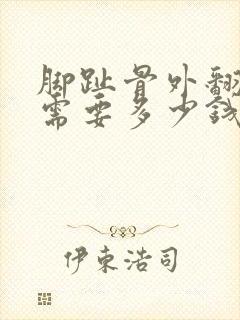 脚趾骨外翻
需要多少钱
伊东浩司